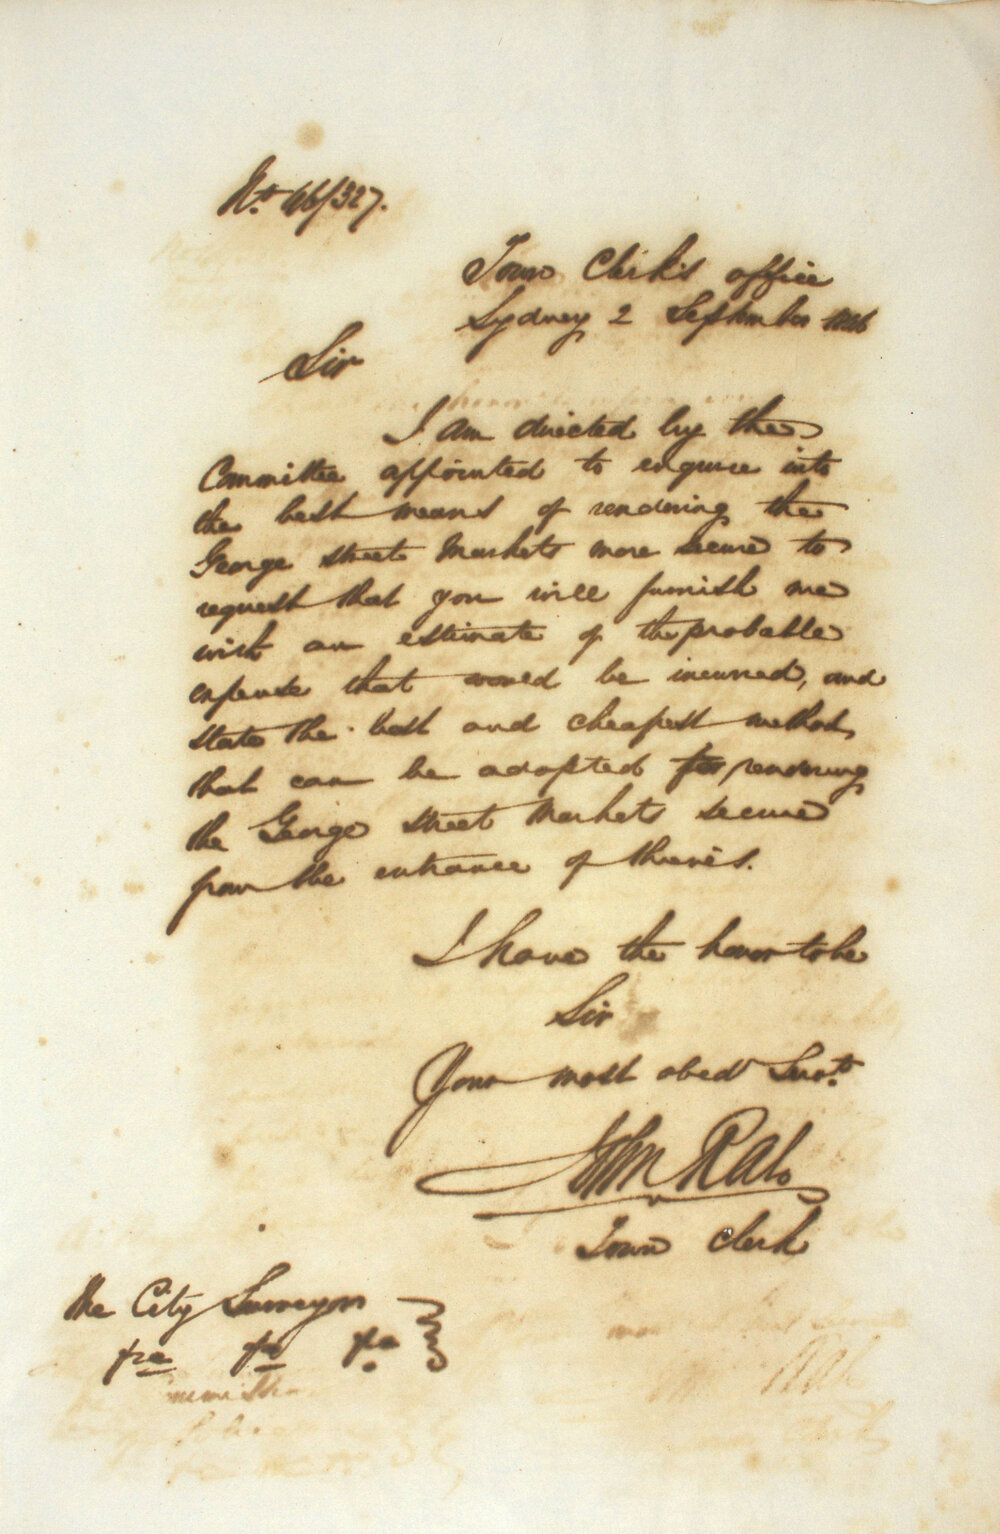 No. 46/327.
Town Clerk's office
Sydney 2 September 1846
Sir
I am directed by the
Committee appointed to enquire into
the best means of rendering the
George street Markets more secure to
request that you will furnish me
with an estimate of the probable
expense that would be incurred, and
state the best and cheapest method,
that can be adopted for rendering
the George street Markets secure
from the entrance of thieves.
I have the honor to be
Sir
Your most obedt Servt.
John Rae
Town Clerk
The City Surveyor
&c &c &c